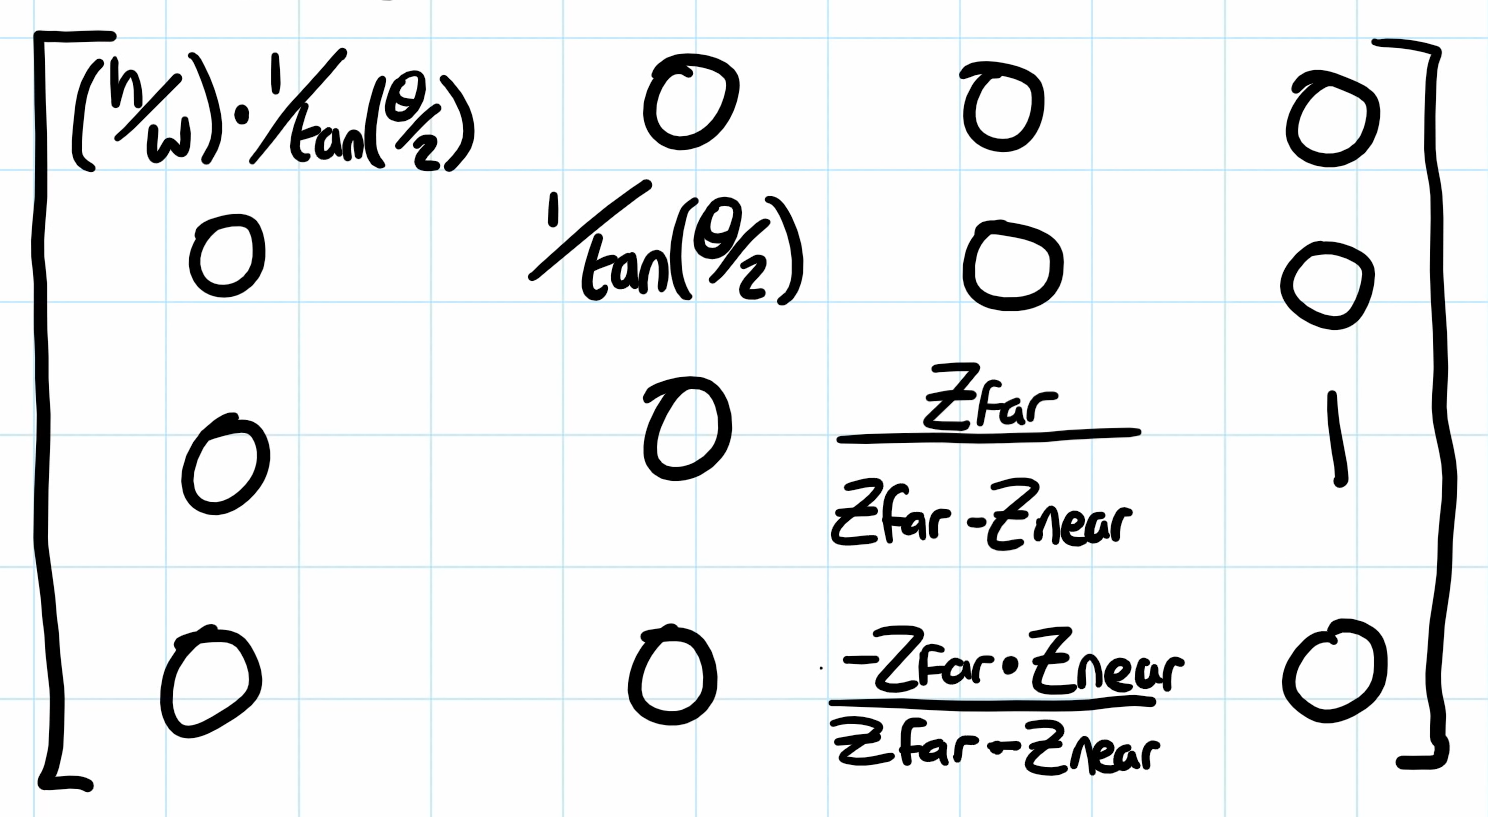 (h/w)·1/tan(θ/2) 0 0 0
0 1/tan(θ/2) 0 0
0 0 Zfar/Zfar-Znear 1
0 0 -Zfar·Znear/Zfar-Znear 0